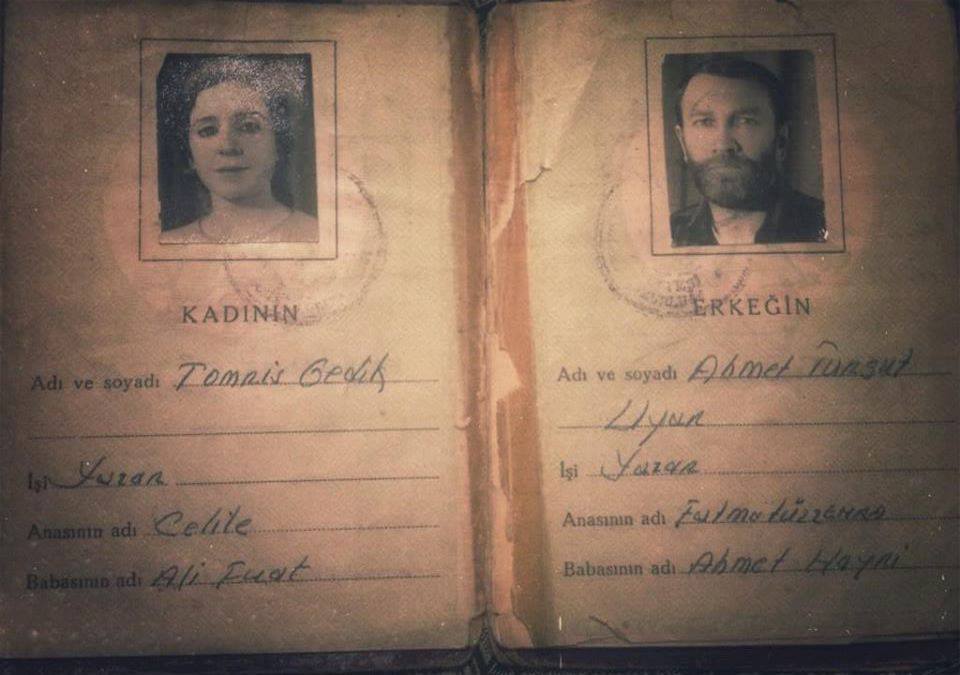 KADININ
Adı ve soyadı Tomris Gedik
İşi Yazar
Anasının adı Celile
Babasının adı Ali Fuat
ERKEĞİN
Adı ve soyadı Ahmet Turgut
Uyar
İşi Yazar
Anasının adı Fatmatüzzehra
Babasının adı Ahmet Hayri